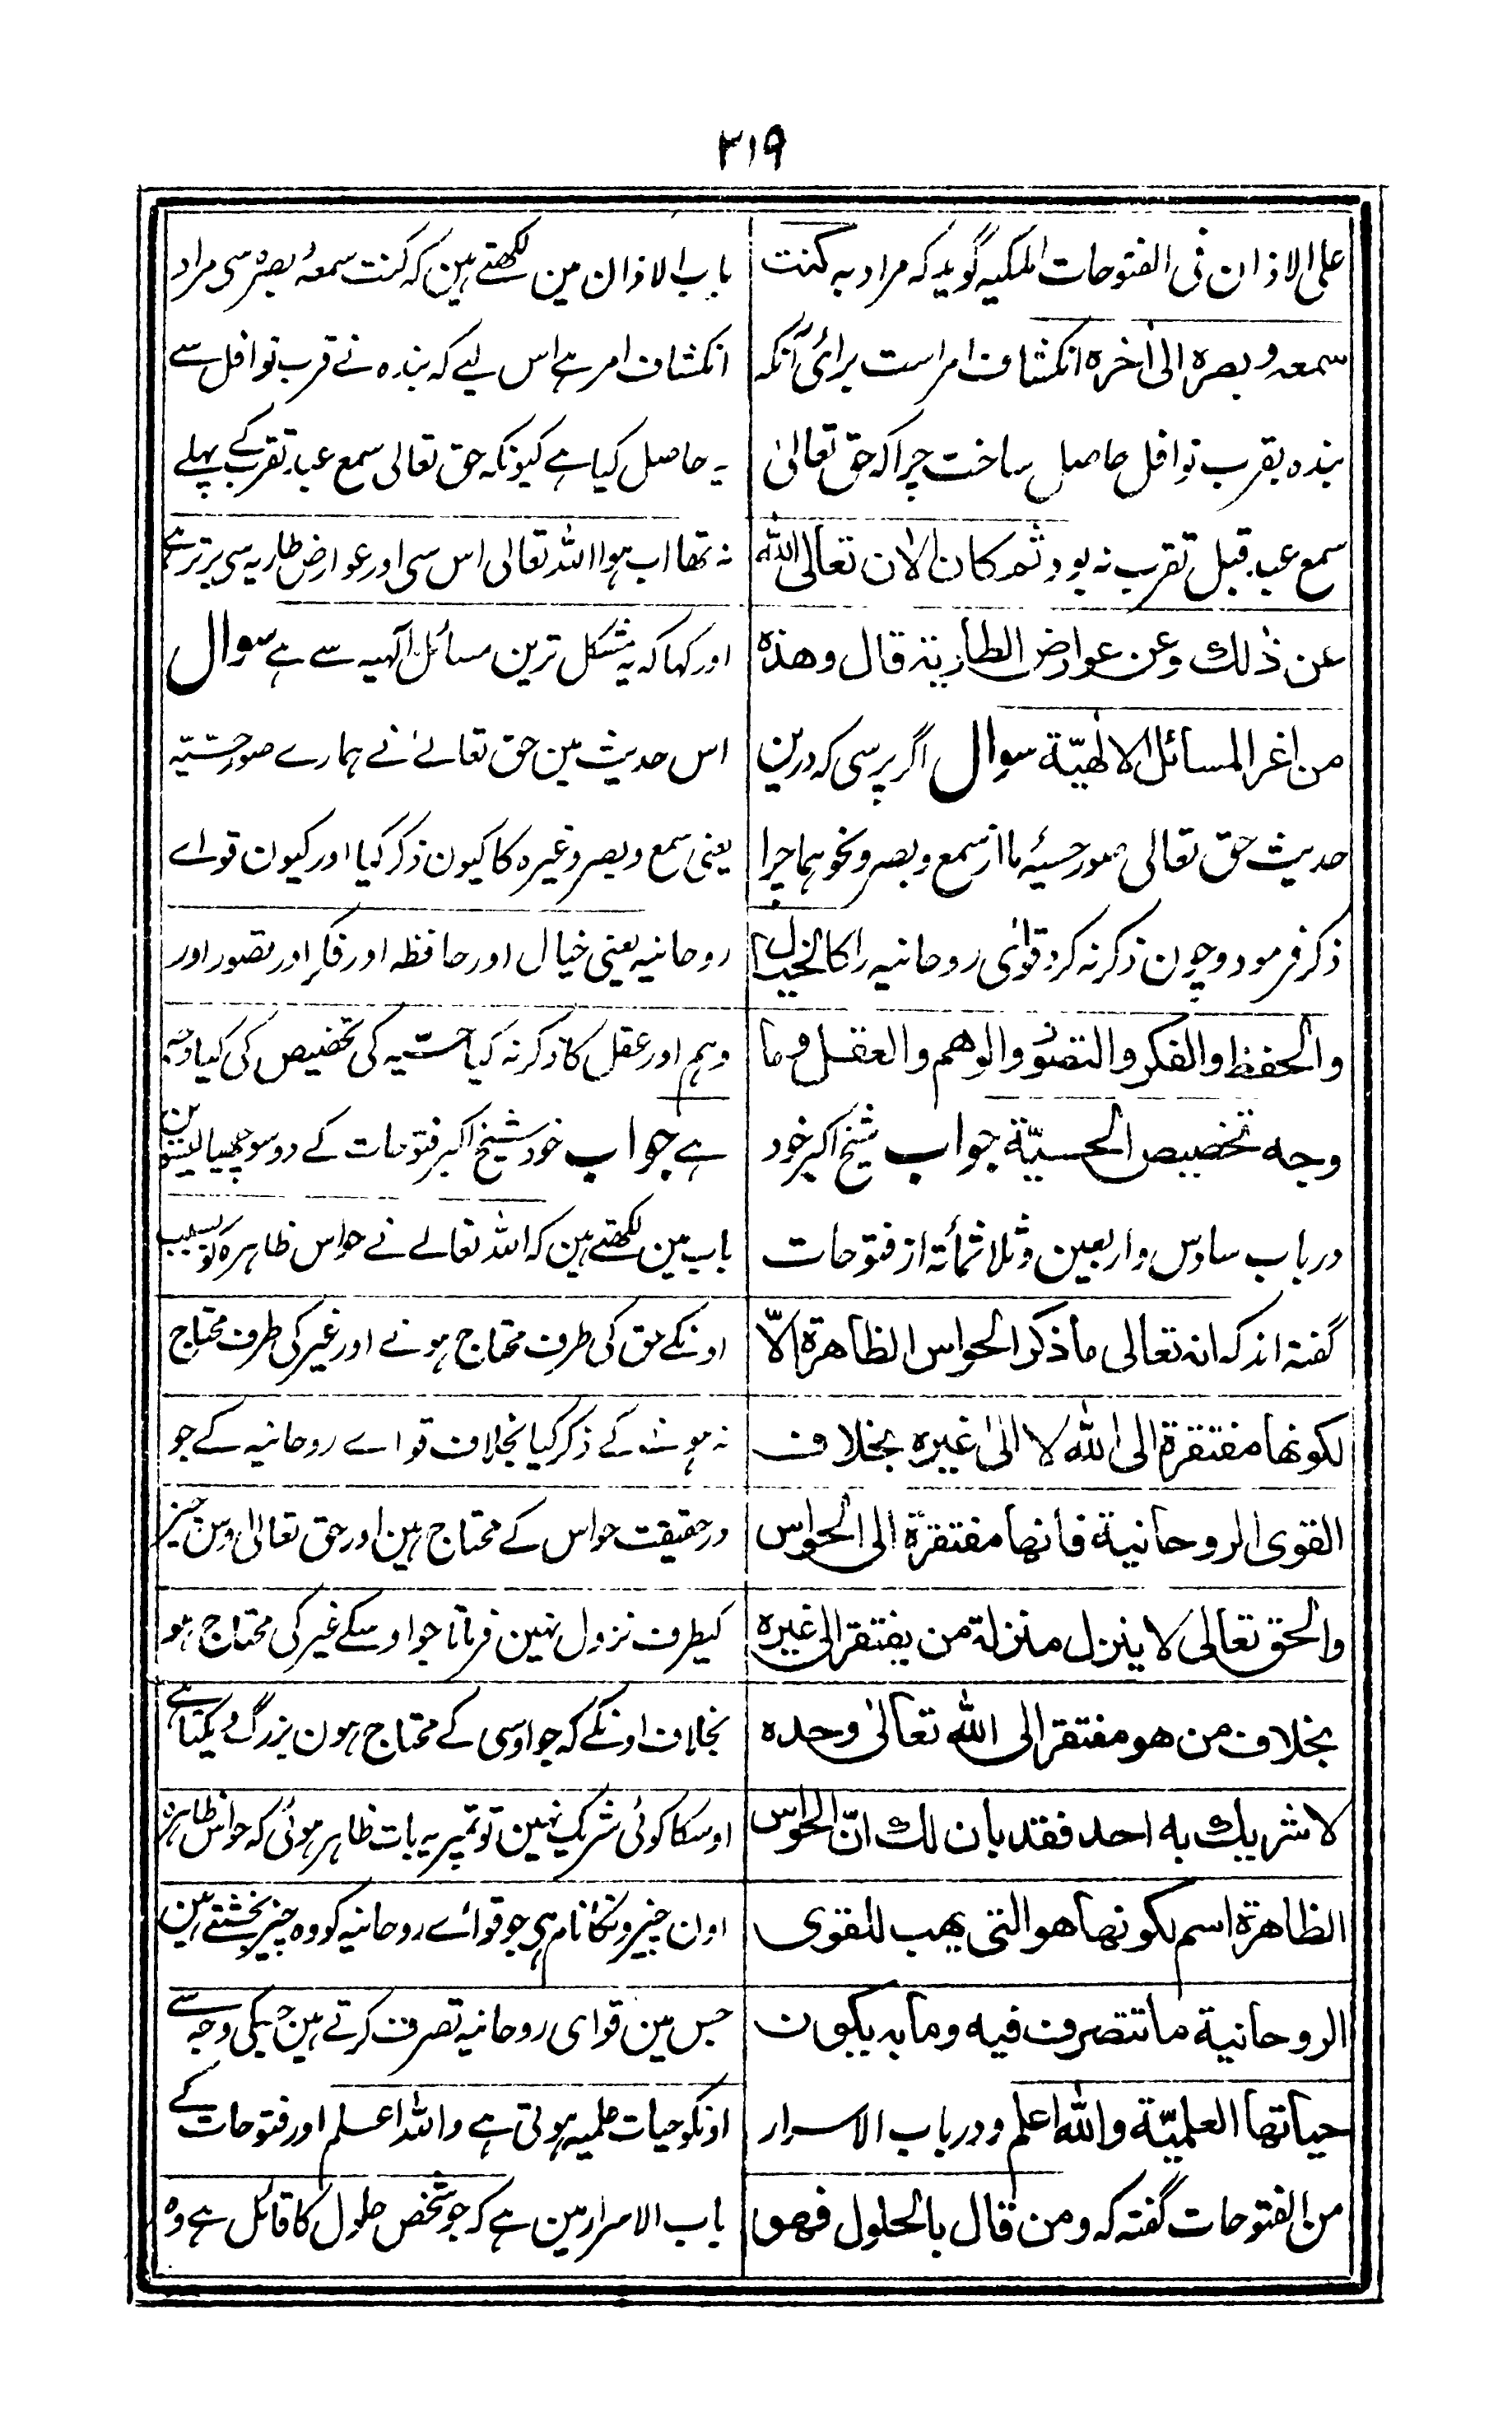 ۳۱۹
علی الاذان فی الفتوحات المکیه گوید که مراد به کنت
سمعه وبصره الی اٰخره انکشاف امر است برای آنکه
بنده بقرب نوافل حاصل ساخت چرا که حق تعالیٰ
سمع عبد قبل تقرب نه بود ثم کان الاٰن تعالی الله
عن ذٰلك وعن عوارض الطارية قال وهذه
من اغر المسائل الالٰهيّة سوال اگر پرسی که درین
حدیث حق تعالی صور حسیهٔ ما از سمع و بصر ونحوهما چرا
ذکر فرمود وچون ذکر نه کرد قوای روحانیه را کالخیال
والحفظ والفكر والتصوّر والوهم والعقل وما
وجه تخصيص الحسيّة جواب شیخ اکبر خود
در باب سادس واربعین وثلاثمائة از فتوحات
گفته اند که انه تعالى ماذكر الحواس الظاهرة الّا
لكونها مفتقرة الى الله لا الىٰ غيره بخلاف
القوى الروحانية فانها مفتقرة الى الحواس
والحق تعالى لا ينزل منزلة من يفتقر الى غيره
بخلاف من هو مفتقر الى الله تعالىٰ وحده
لاشريك به احد فقد بان لك انّ الحواس
الظاهرة اسم لكونها هو التي يهب للقوى
الروحانية ما تتصرف فيه وما به يكون
حياتها العلميّة والله اعلم ودر باب الاسرار
من الفتوحات گفته که ومن قال بالحلول فهو
باب الاذان مین لکھتے ہین کہ کنت سمعهٗ بصرهٗ سی مراد
انکشاف امر ہے اس لیے کہ بندہ نے قرب نوافل سے
یہ حاصل کیا ہے کیونکہ حق تعالی سمع عبد تقرب کے پہلے
نہ تھا اب ہوا اللہ تعالی اس سی اور عوارض طاریہ سی برتر ہے
اور کہا کہ یہ مشکل ترین مسائل آلہیہ سے ہے سوال
اس حدیث مین حق تعالےٰ نے ہمارے صور حسّیّہ
یعنی سمع وبصر وغیرہ کا کیون ذکر کیا اور کیون قوائے
روحانیہ یعنی خیال اور حافظہ اور فکر اور تصور اور
وہم اور عقل کا ذکر نہ کیا حسّیہ کی تخصیص کی کیا وجہ
ہے جواب خود شیخ اکبر فتوحات کے دو سو چھیالیسوین
باب مین لکھتے ہین کہ اللہ تعالے نے حواس ظاہرہ کو بسبب
اونکے حق کی طرف محتاج ہونے اور غیر کی طرف محتاج
نہ ہونے کے ذکر کیا بخلاف قوائے روحانیہ کے جو
درحقیقت حواس کے محتاج ہین اور حق تعالیٰ اوس چیز
کیطرف نزول نہین فرماتا جو اوسکے غیر کی محتاج ہو
بخلاف اونکے کہ جو اوسی کے محتاج ہون بزرگ و یکتا ہے
اوسکا کوئی شریک نہین تو تمپر یہ بات ظاہر ہوئی کہ حواس ظاہرہ
اون چیزونکا نام ہی جو قوائے روحانیہ کو وہ چیز بخشتے ہین
جس مین قوای روحانیہ تصرف کرتے ہین جسکی وجہ سے
اونکو حیات علمیہ ہوتی ہے واللہ اعلم اور فتوحات کے
باب الاسرار مین ہے کہ جو شخص حلول کا قائل ہے وہ